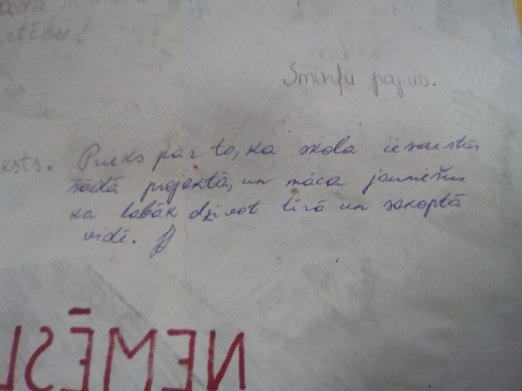 Smiņķu papus.
Prieks par to, ka skola iesaistās
šādā projektā, un māca jauniešus
ka labāk dzīvot tīrā un sakoptā
vidē.
NEMĒSL